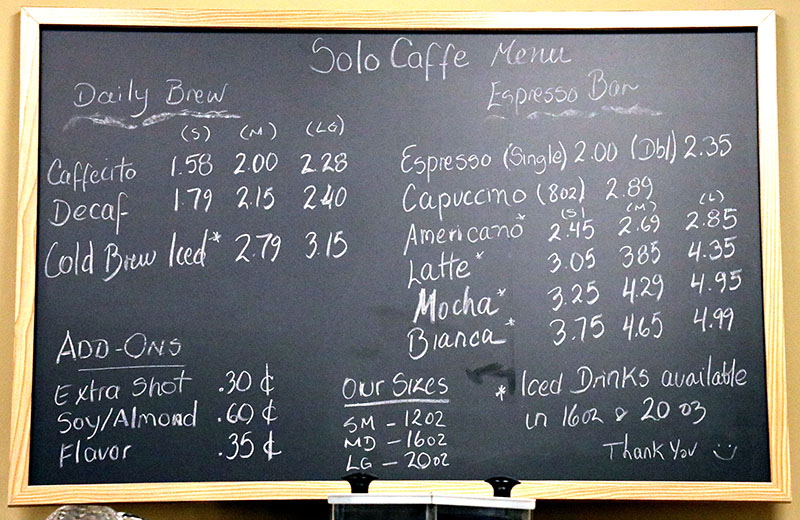 Solo Caffe Menu
Daily Brew
(S) (M) (LG)
Caffecito 1.58 2.00 2.28
Decaf 1.79 2.15 2.40
Cold Brew Iced* 2.79 3.15
Espresso Bar
Espresso (Single) 2.00 (Dbl) 2.35
Capuccino (8oz) 2.89
(S) (M) (L)
Americano* 2.45 2.69 2.85
Latte* 3.05 3.85 4.35
Mocha* 3.25 4.29 4.95
Bianca* 3.75 4.65 4.99
ADD-ONS
Extra Shot .30 ¢
Soy/Almond .60 ¢
Flavor .35 ¢
Our Sizes
SM - 12oz
MD - 16oz
LG - 20oz
* Iced Drinks available
in 16oz & 20oz
Thank You